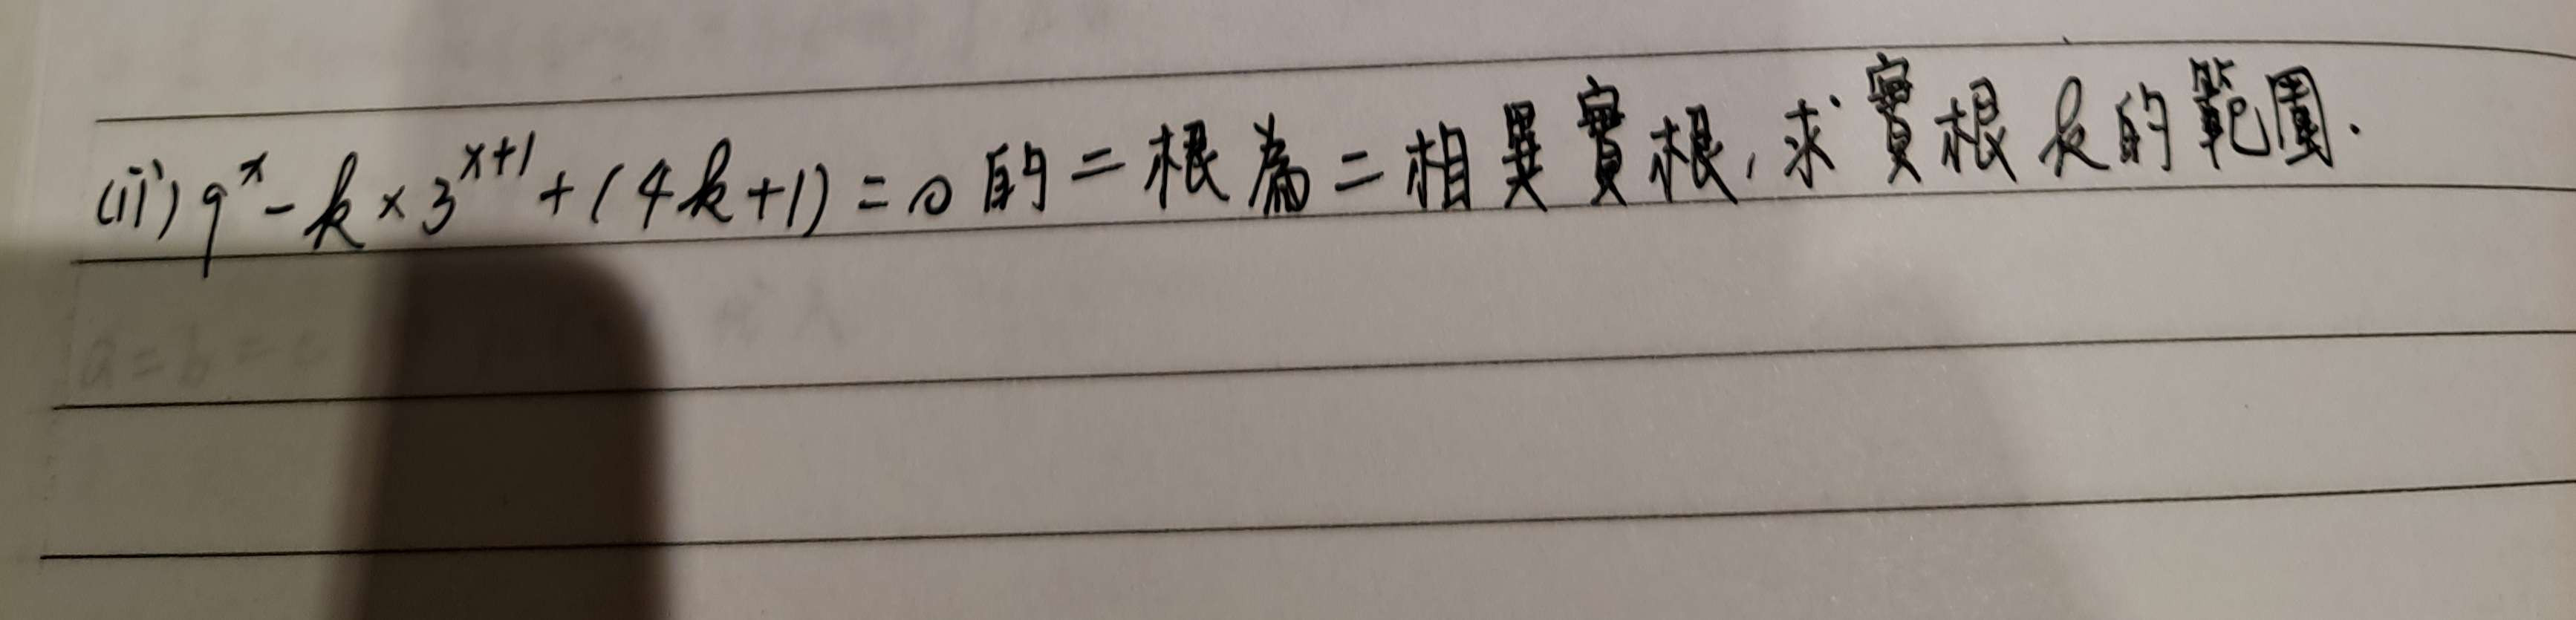 (ii) 9^x - k × 3^(x+1) + (4k+1) = 0 的二根為二相異實根, 求實根 k 的範圍.
a = b = c